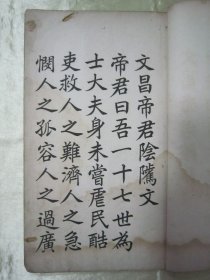 文昌帝君陰騭文
帝君曰吾一十七世為
士大夫身未嘗虐民酷
吏救人之難濟人之急
憫人之孤容人之過廣